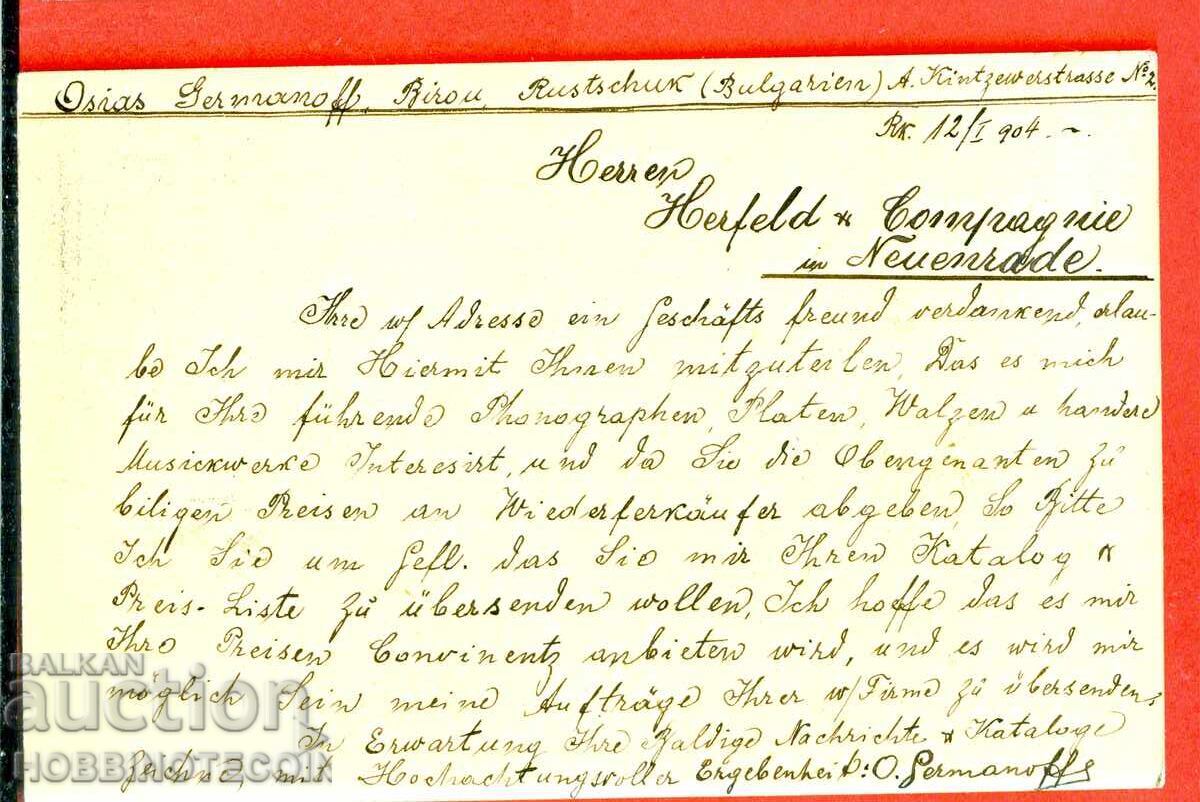 Osias Germanoff, Birou, Rustschuk (Bulgarien) A. Kintzewerstrasse No 2.
Rk. 12/I 904. -~.
Herren
Herfeld & Compagnie
in Neuenrade.
Ihre w/ Adresse ein Geschäfts freund verdankend, erlau-
be Ich mir Hiermit Ihnen mitzuteilen, Das es mich
für Ihre führende Phonographen, Platen, Walzen u handere
Musickwerke Interesirt, und da Sie die Obengenanten zu
biligen Preisen an Wiederferkäufer abgeben, So Bitte
Ich Sie um Gefl. das Sie mir Ihren Katalog &
Preis-Liste zu übersenden wollen, Ich hoffe das es mir
Ihre Preisen Convinentz anbieten wird, und es wird mir
möglich Sein meine Aufträge Ihrer w/ Firme zu übersenden,
In Erwartung Ihre Baldige Nachrichte & Kataloge
mit Hochachtungsvoller Ergebenheit: O. Germanoff
BALKAN
auction
HOBBINOTEZC